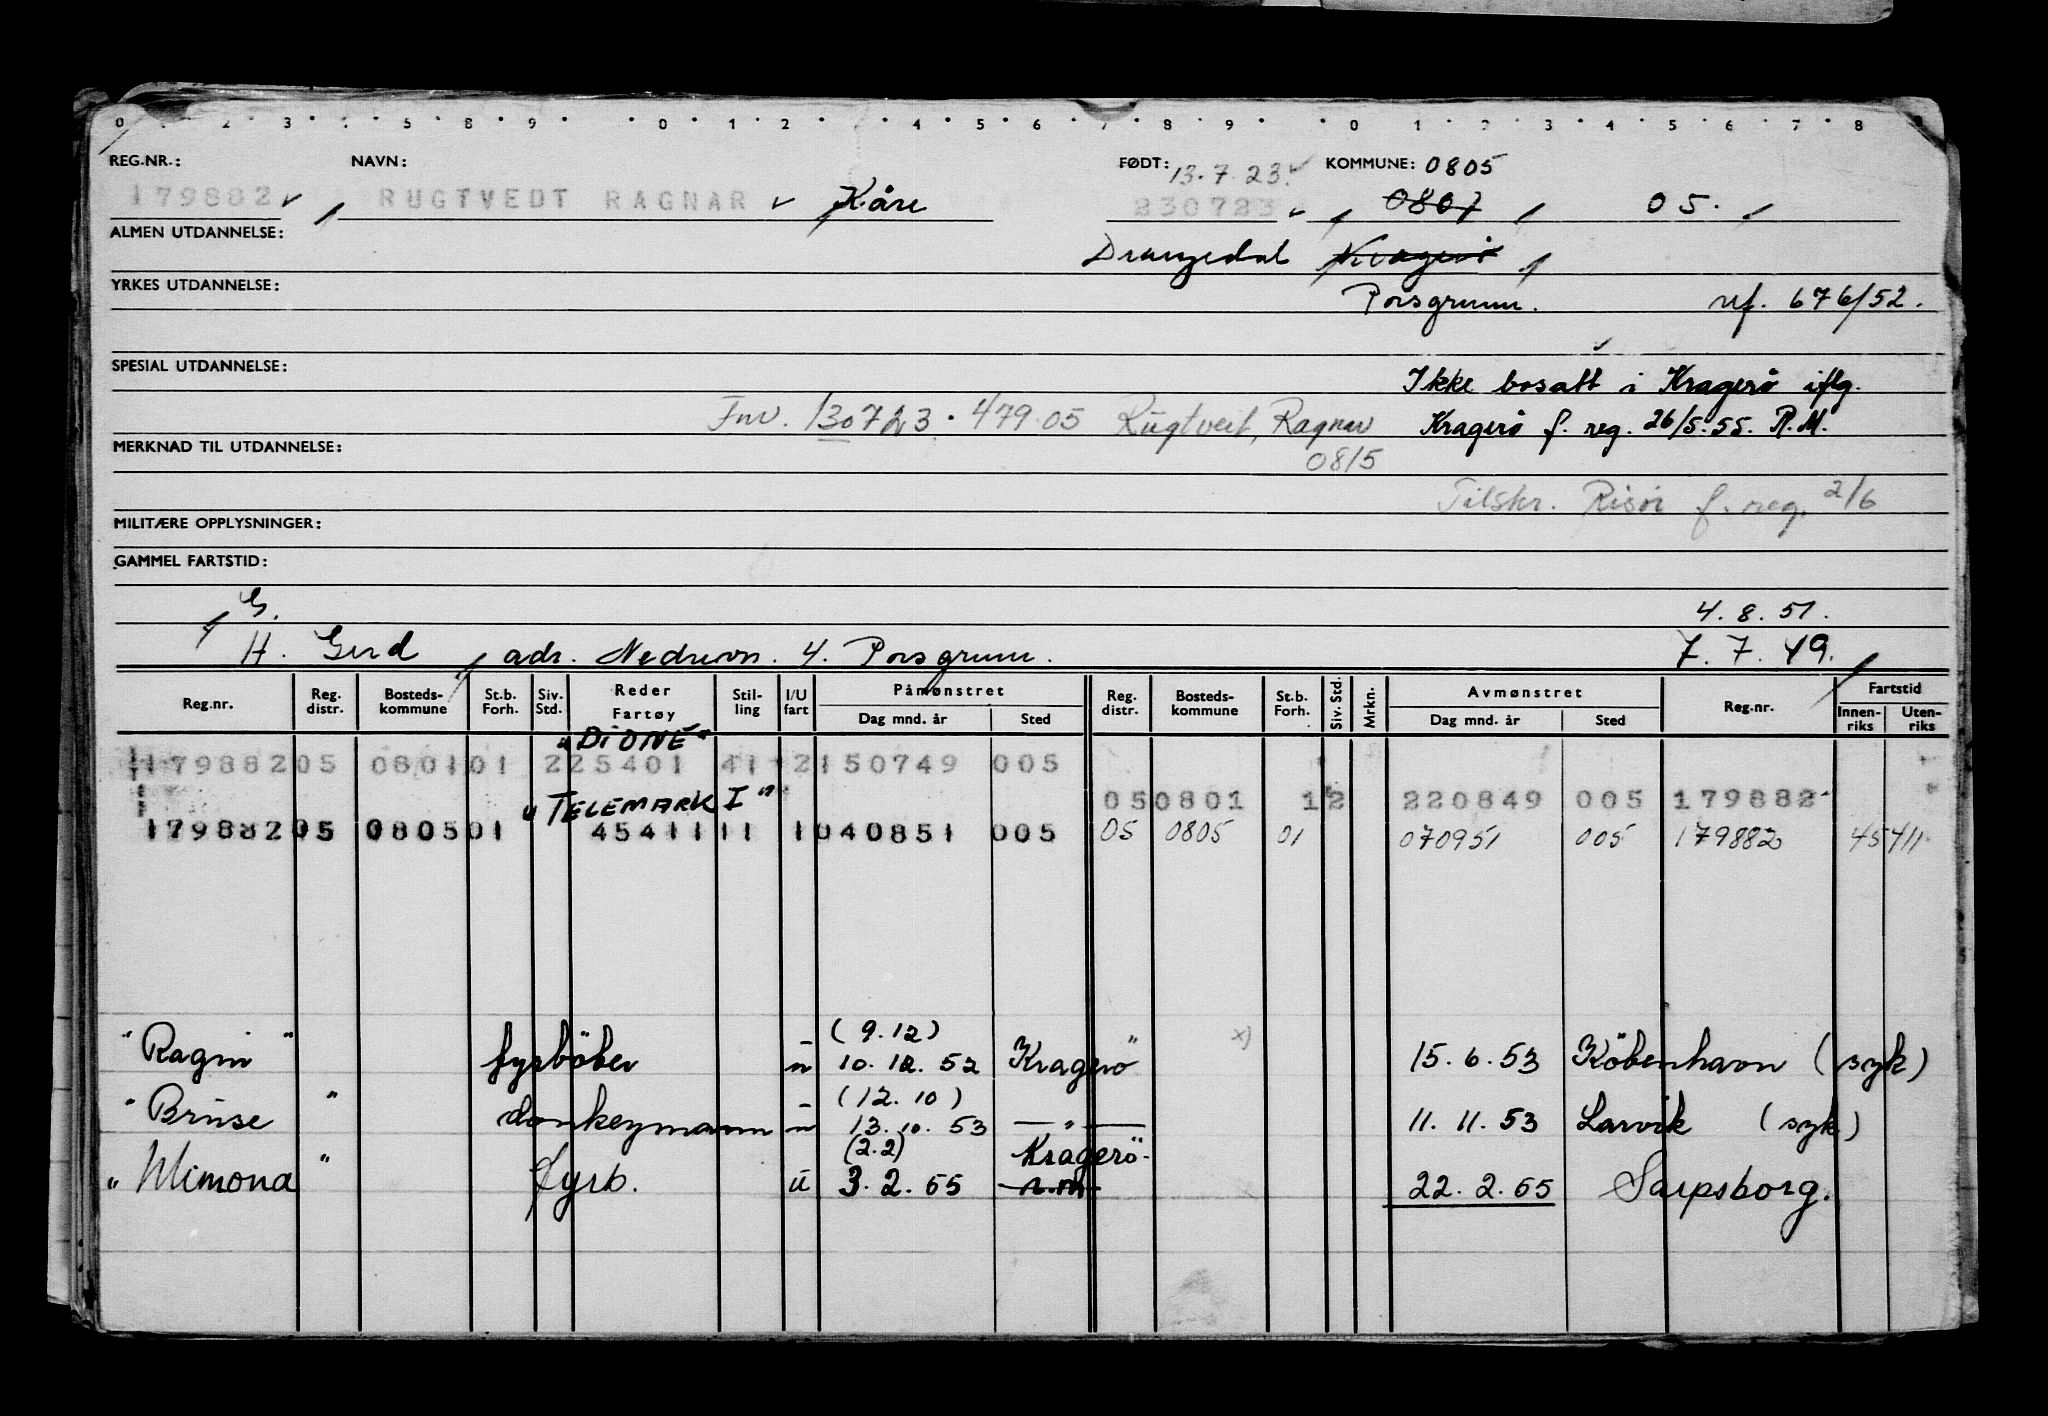 0 2 3 5 8 9 0 1 2 4 5 6 7 8 9 0 1 2 3 4 5 6 7 8
REG.NR.: NAVN: FØDT: 13.7.23. KOMMUNE: 0805
179882 RUGTVEDT RAGNAR Kåre 230723 0807 05.
ALMEN UTDANNELSE: Drangedal Kragerö
YRKES UTDANNELSE: Porsgrunn. nf. 676/52.
SPESIAL UTDANNELSE: Ikke bosatt i Kragerö iflg.
Fnr. 130723.479.05 Rugtveit, Ragnar Kragerö f. reg. 26/5.55. R.M.
MERKNAD TIL UTDANNELSE: 0815
Tilskr. Risör f. reg. 2/6
MILITÆRE OPPLYSNINGER:
GAMMEL FARTSTID:
G. 4.8.51.
H. Gerd adr. Nedrevn. 4. Porsgrunn. 7.7.49.
Reg.nr. Reg. distr. Bosteds-kommune St.b. Forh. Siv. Std. Reder Fartøy Stil-ling I/U fart Påmønstret Dag mnd. år Sted Reg. distr. Bosteds-kommune St.b. Forh. Siv. Std. Mrkn. Avmønstret Dag mnd. år Sted Reg.nr. Fartstid Innen-riks Uten-riks
"DIONE"
179882 05 0801 01 225401 41 2 150749 005
"TELEMARK I" 05 0801 12 220849 005 179882
179882 05 0805 01 45411 11 1 040851 005 05 0805 01 070951 005 179882 45411
(9.12) x)
"Ragni" fyrböter u 10.12.52 Kragerö 15.6.53 Köbenhavn (syk)
(12.10)
"Bruse" donkeymann u 13.10.53 — " — 11.11.53 Larvik (syk)
(2.2) Kragerö.
"Mimona" fyrb. u 3.2.55 r.m 22.2.55 Sarpsborg.